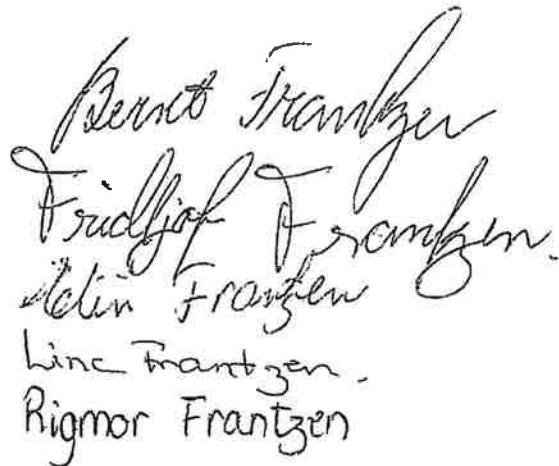 Bernt Frantzen
Fridtjof Frantzen.
Elin Frantzen
Line Frantzen.
Rigmor Frantzen